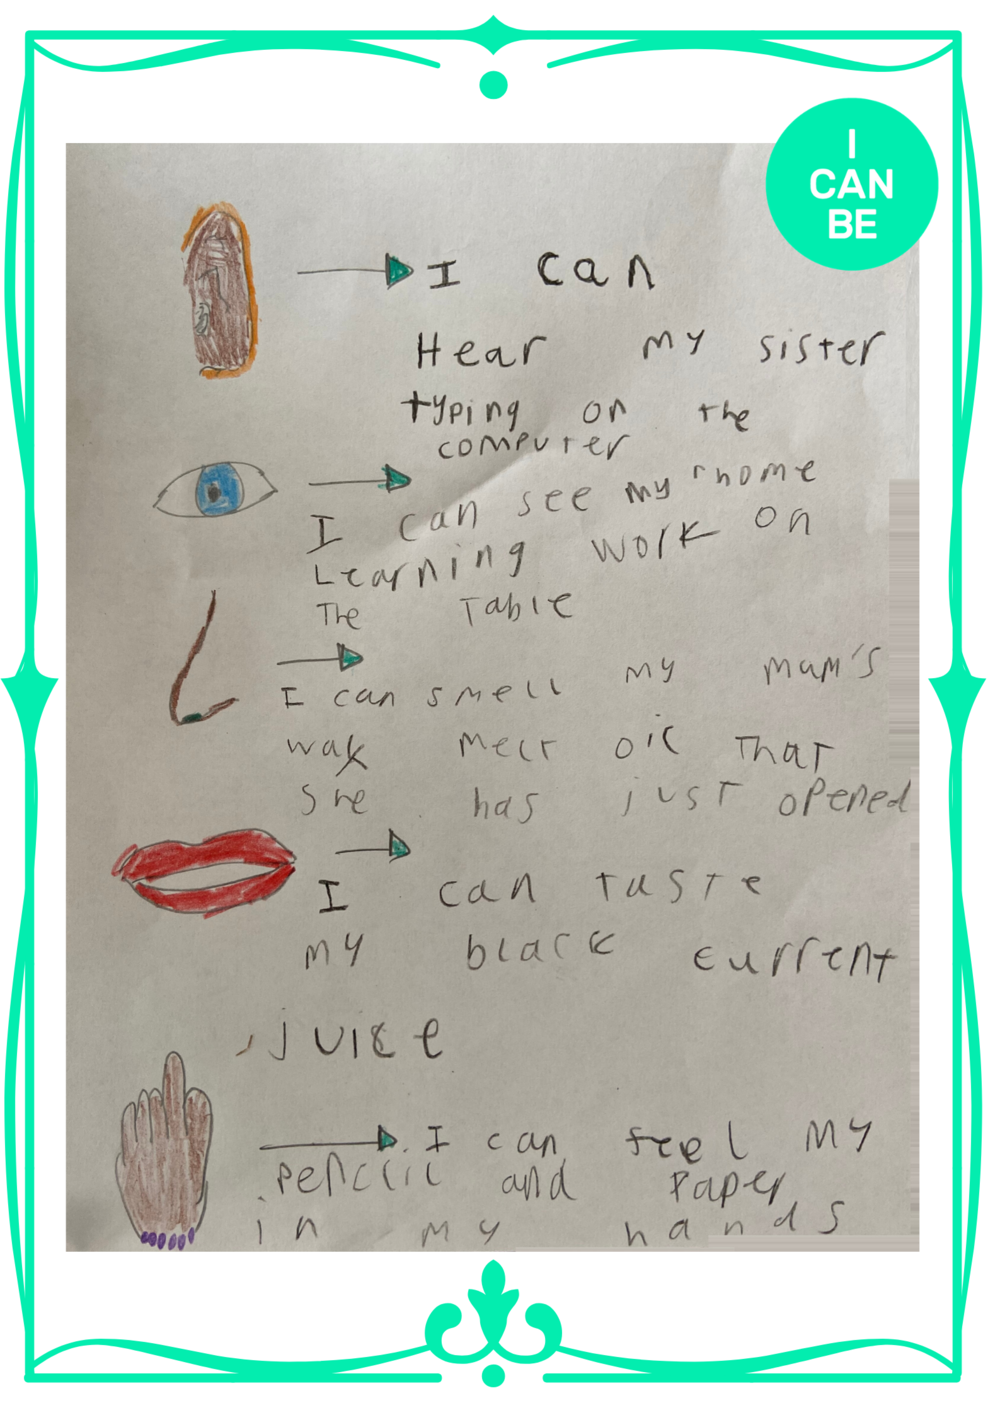 I
CAN
BE
I can
Hear my sister
typing on the
computer
I can see my home
Learning work on
The Table
I can smell my mam's
wax melt oil that
She has just opened
I can taste
my black current
juice
I can feel my
penclil and Paper
in my hands